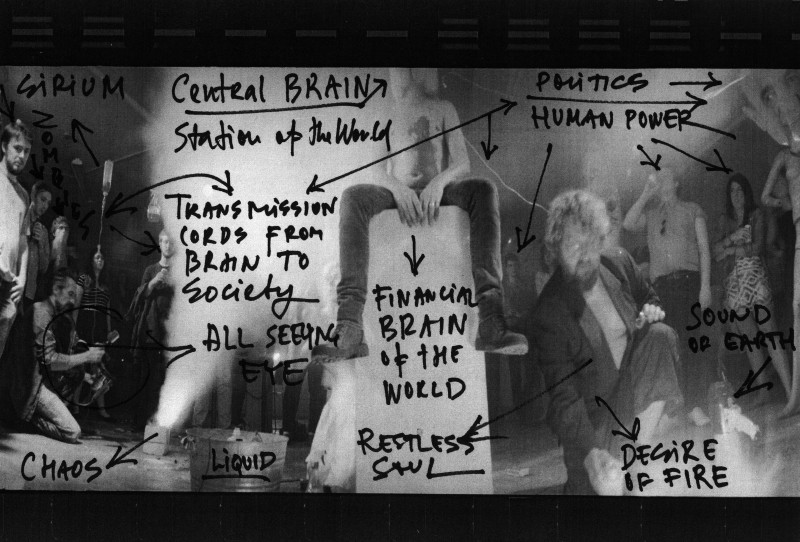 SiRiUM
ZOMBIES
Central BRAIN
Station of the World
POLITICS
HUMAN POWER
TRANSMISSION
CORDS FROM
BRAIN TO
Society
ALL SEEING
EYE
FINANCIAL
BRAIN
of the
WORLD
SOUND
OF EARTH
CHAOS
LIQUID
RESTLESS
SAUL
DESIRE
OF FIRE